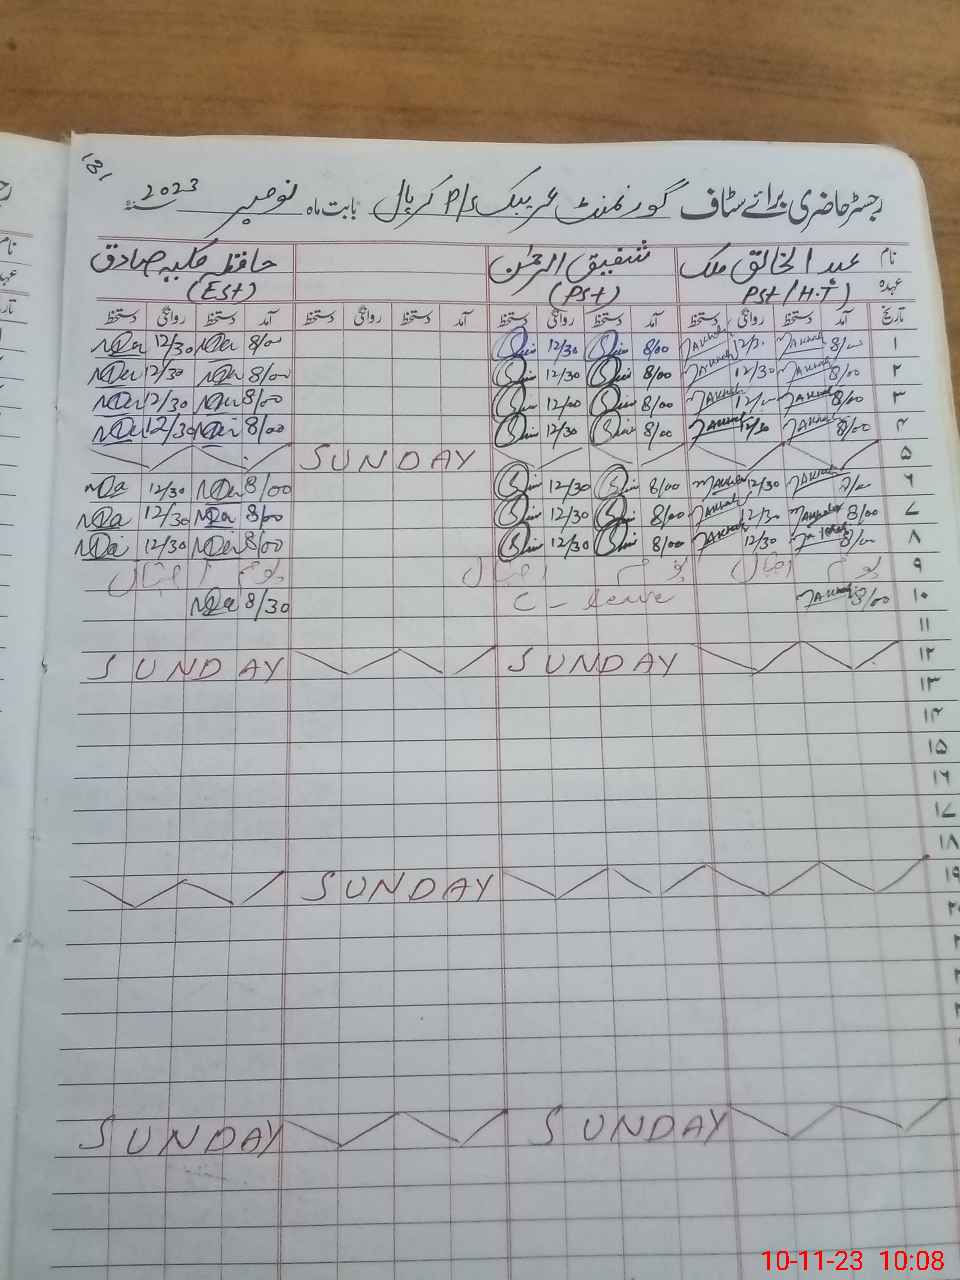 رجسٹر حاضری برائے سٹاف گورنمنٹ عریبک P/S کربال بابت ماہ نومبر 2023
نام عبدالخالق ملک شفیق الرحمٰن حافظہ صادق
عہدہ PST/H.T) (PST) (EST)
تاریخ آمد دستخط روانگی دستخط آمد دستخط روانگی دستخط آمد دستخط روانگی دستخط آمد دستخط روانگی دستخط
۱ 8/00 12/30 8/00 12/30
۲ 8/00 12/30 8/00 12/30 8/00 12/30
۳ 8/00 8/00 12/00 8/00 12/30
۴ 8/00 12/30 8/00 12/30 8/00 12/30
۵ SUNDAY
۶ 12/30 8/00 12/30 8/00 12/30
۷ 8/00 12/30 8/00 12/30 8/00 12/30
۸ 8/00 12/30 8/00 12/30 8/00 12/30
۹ یوم اقبال یوم اقبال یوم اقبال
۱۰ 8/00 C - Leave 8/30
۱۱
۱۲ SUNDAY SUNDAY
۱۳
۱۴
۱۵
۱۶
۱۷
۱۸
۱۹ SUNDAY
SUNDAY SUNDAY
10-11-23 10:08